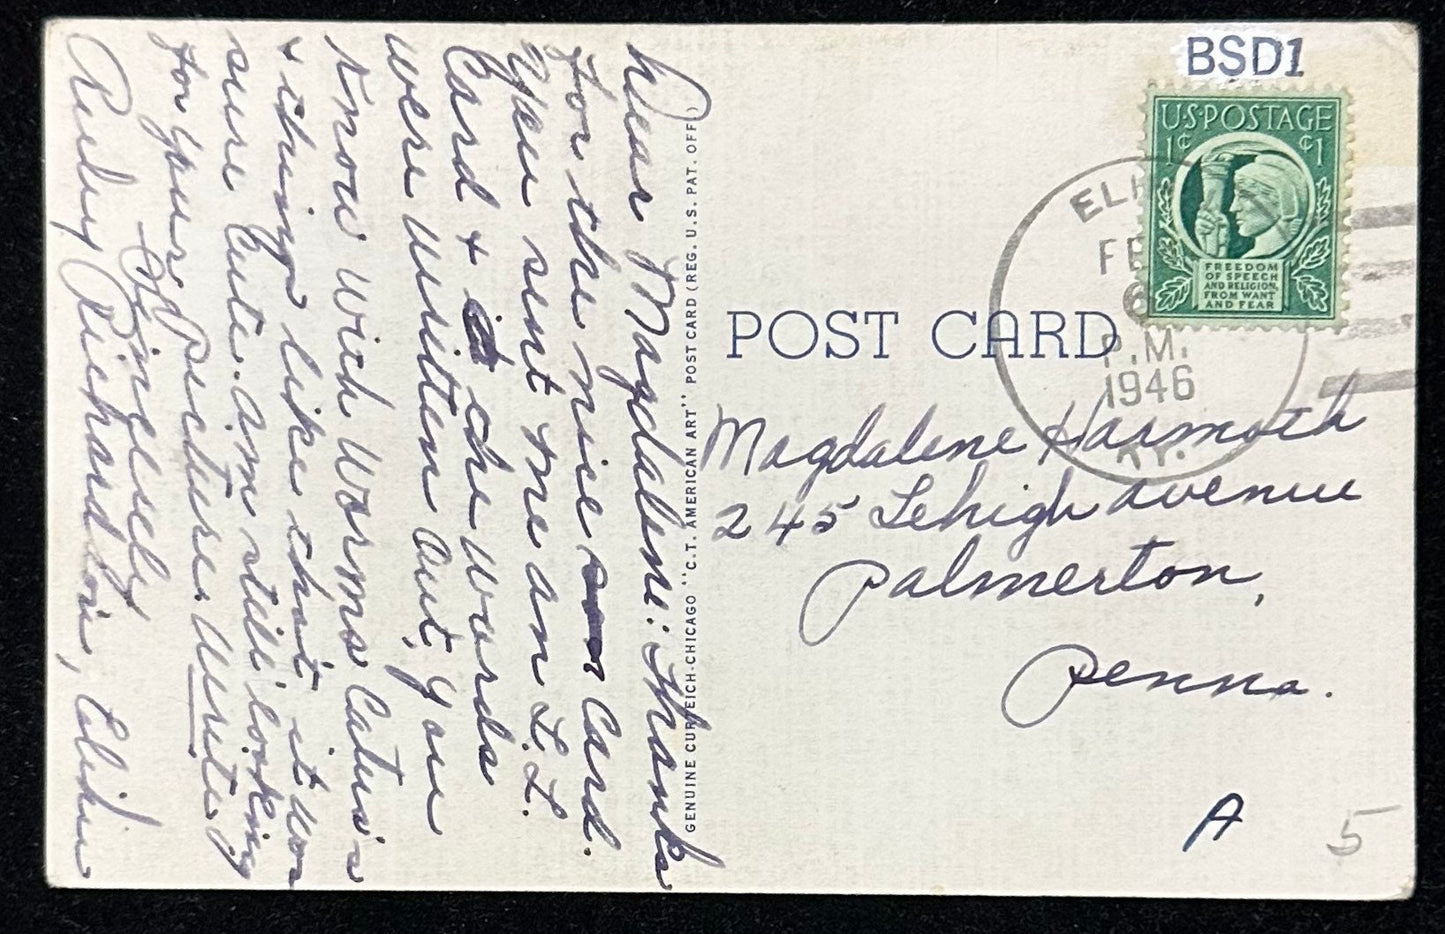 Dear Magdalene: Thanks
for the nice card.
you sent me an L.L.
Card + the words
were written out, you
know with worms, Catus's
+ things like that, it was
sure cute. am still looking
for your picture. Write.
Sincerely
Ruby Richardson, Elihu
GENUINE CURTEICH-CHICAGO "C.T. AMERICAN ART" POST CARD (REG. U.S. PAT. OFF.)
POST CARD
BSD1
U.S. POSTAGE
1¢ ¢1
FREEDOM
OF SPEECH
AND RELIGION,
FROM WANT
AND FEAR
P.M.
1946
KY.
Magdalene Harmoth
245 Lehigh avenue
Palmerton,
Penna.
A
5